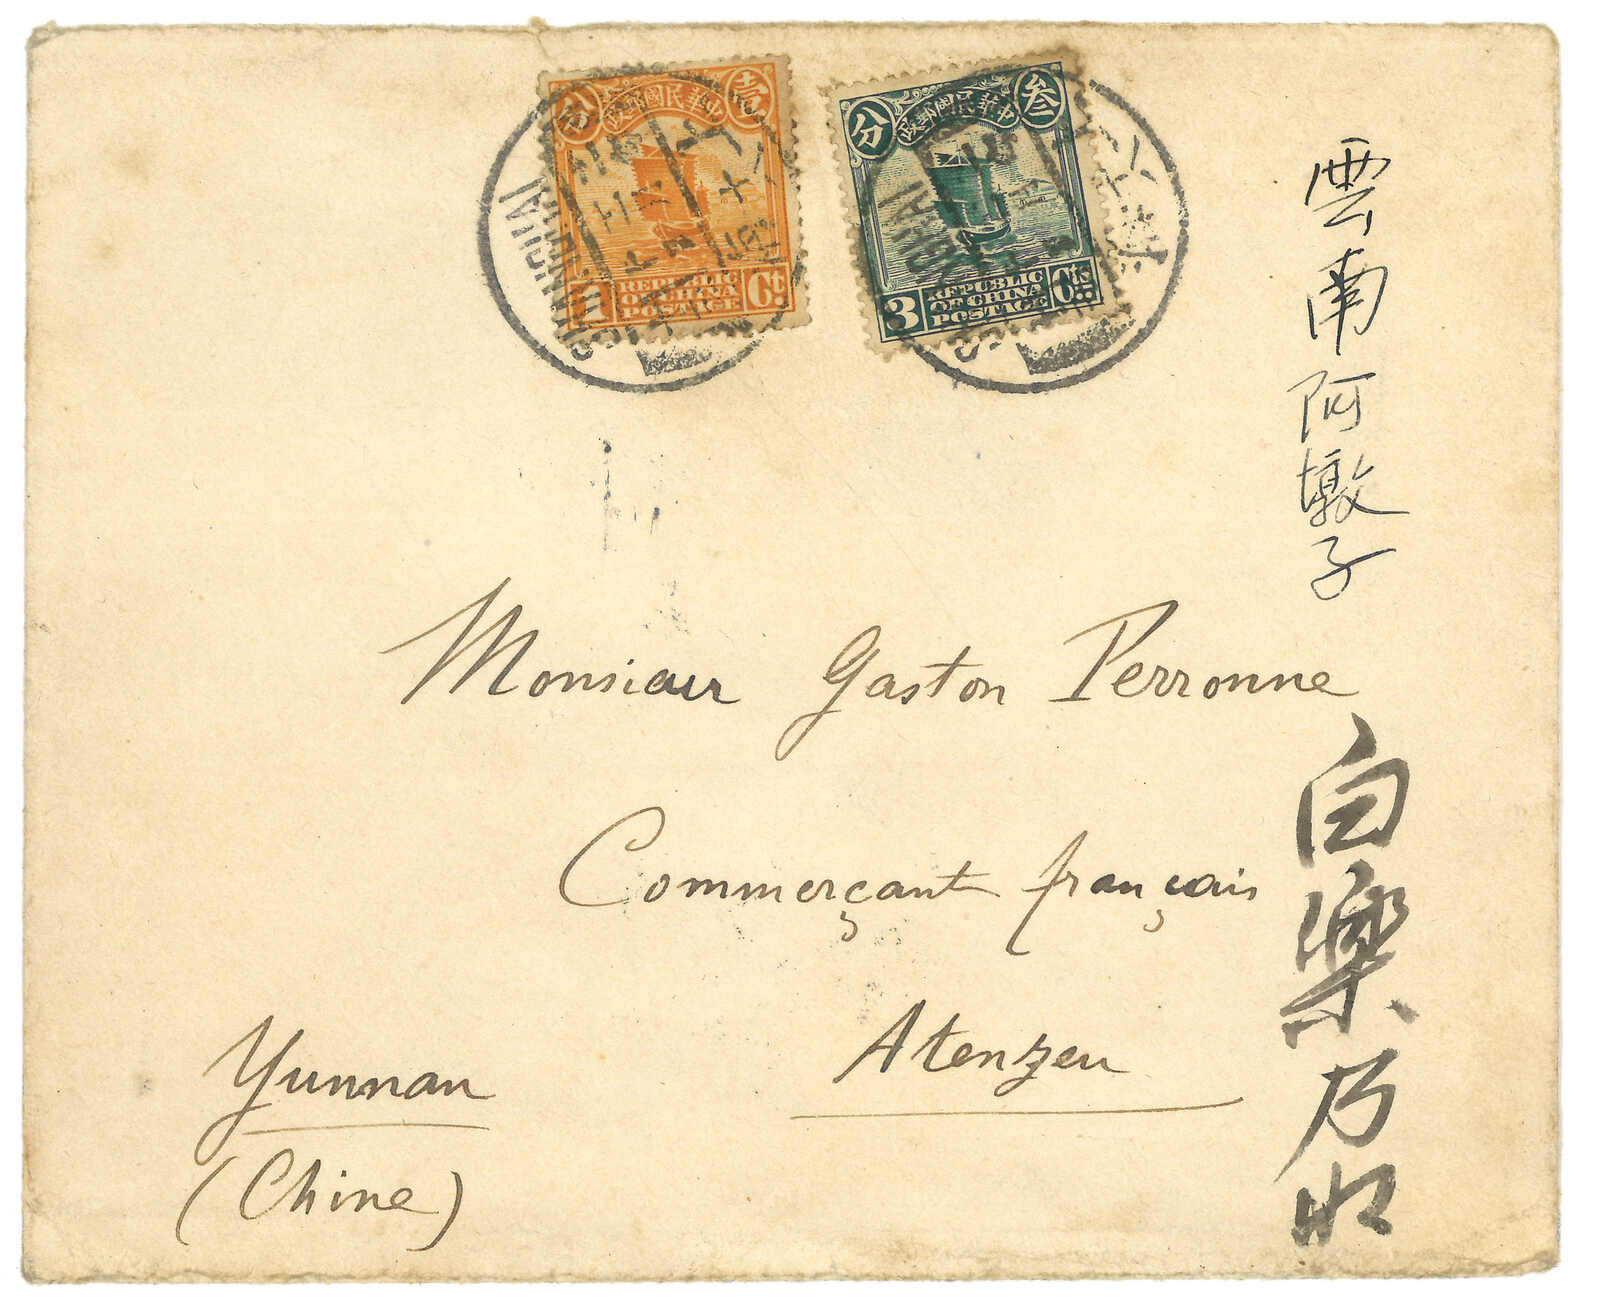 中華民國郵政
壹
分
1
REPUBLIC
OF CHINA
POSTAGE
Ct.
中華民國郵政
叁
分
3
REPUBLIC
OF CHINA
POSTAGE
Cts.
SHANGHAI
雲南阿墩子
Monsieur Gaston Perronne
Commerçant français
Atenzeu
Yunnan
(Chine)
白樂乃收